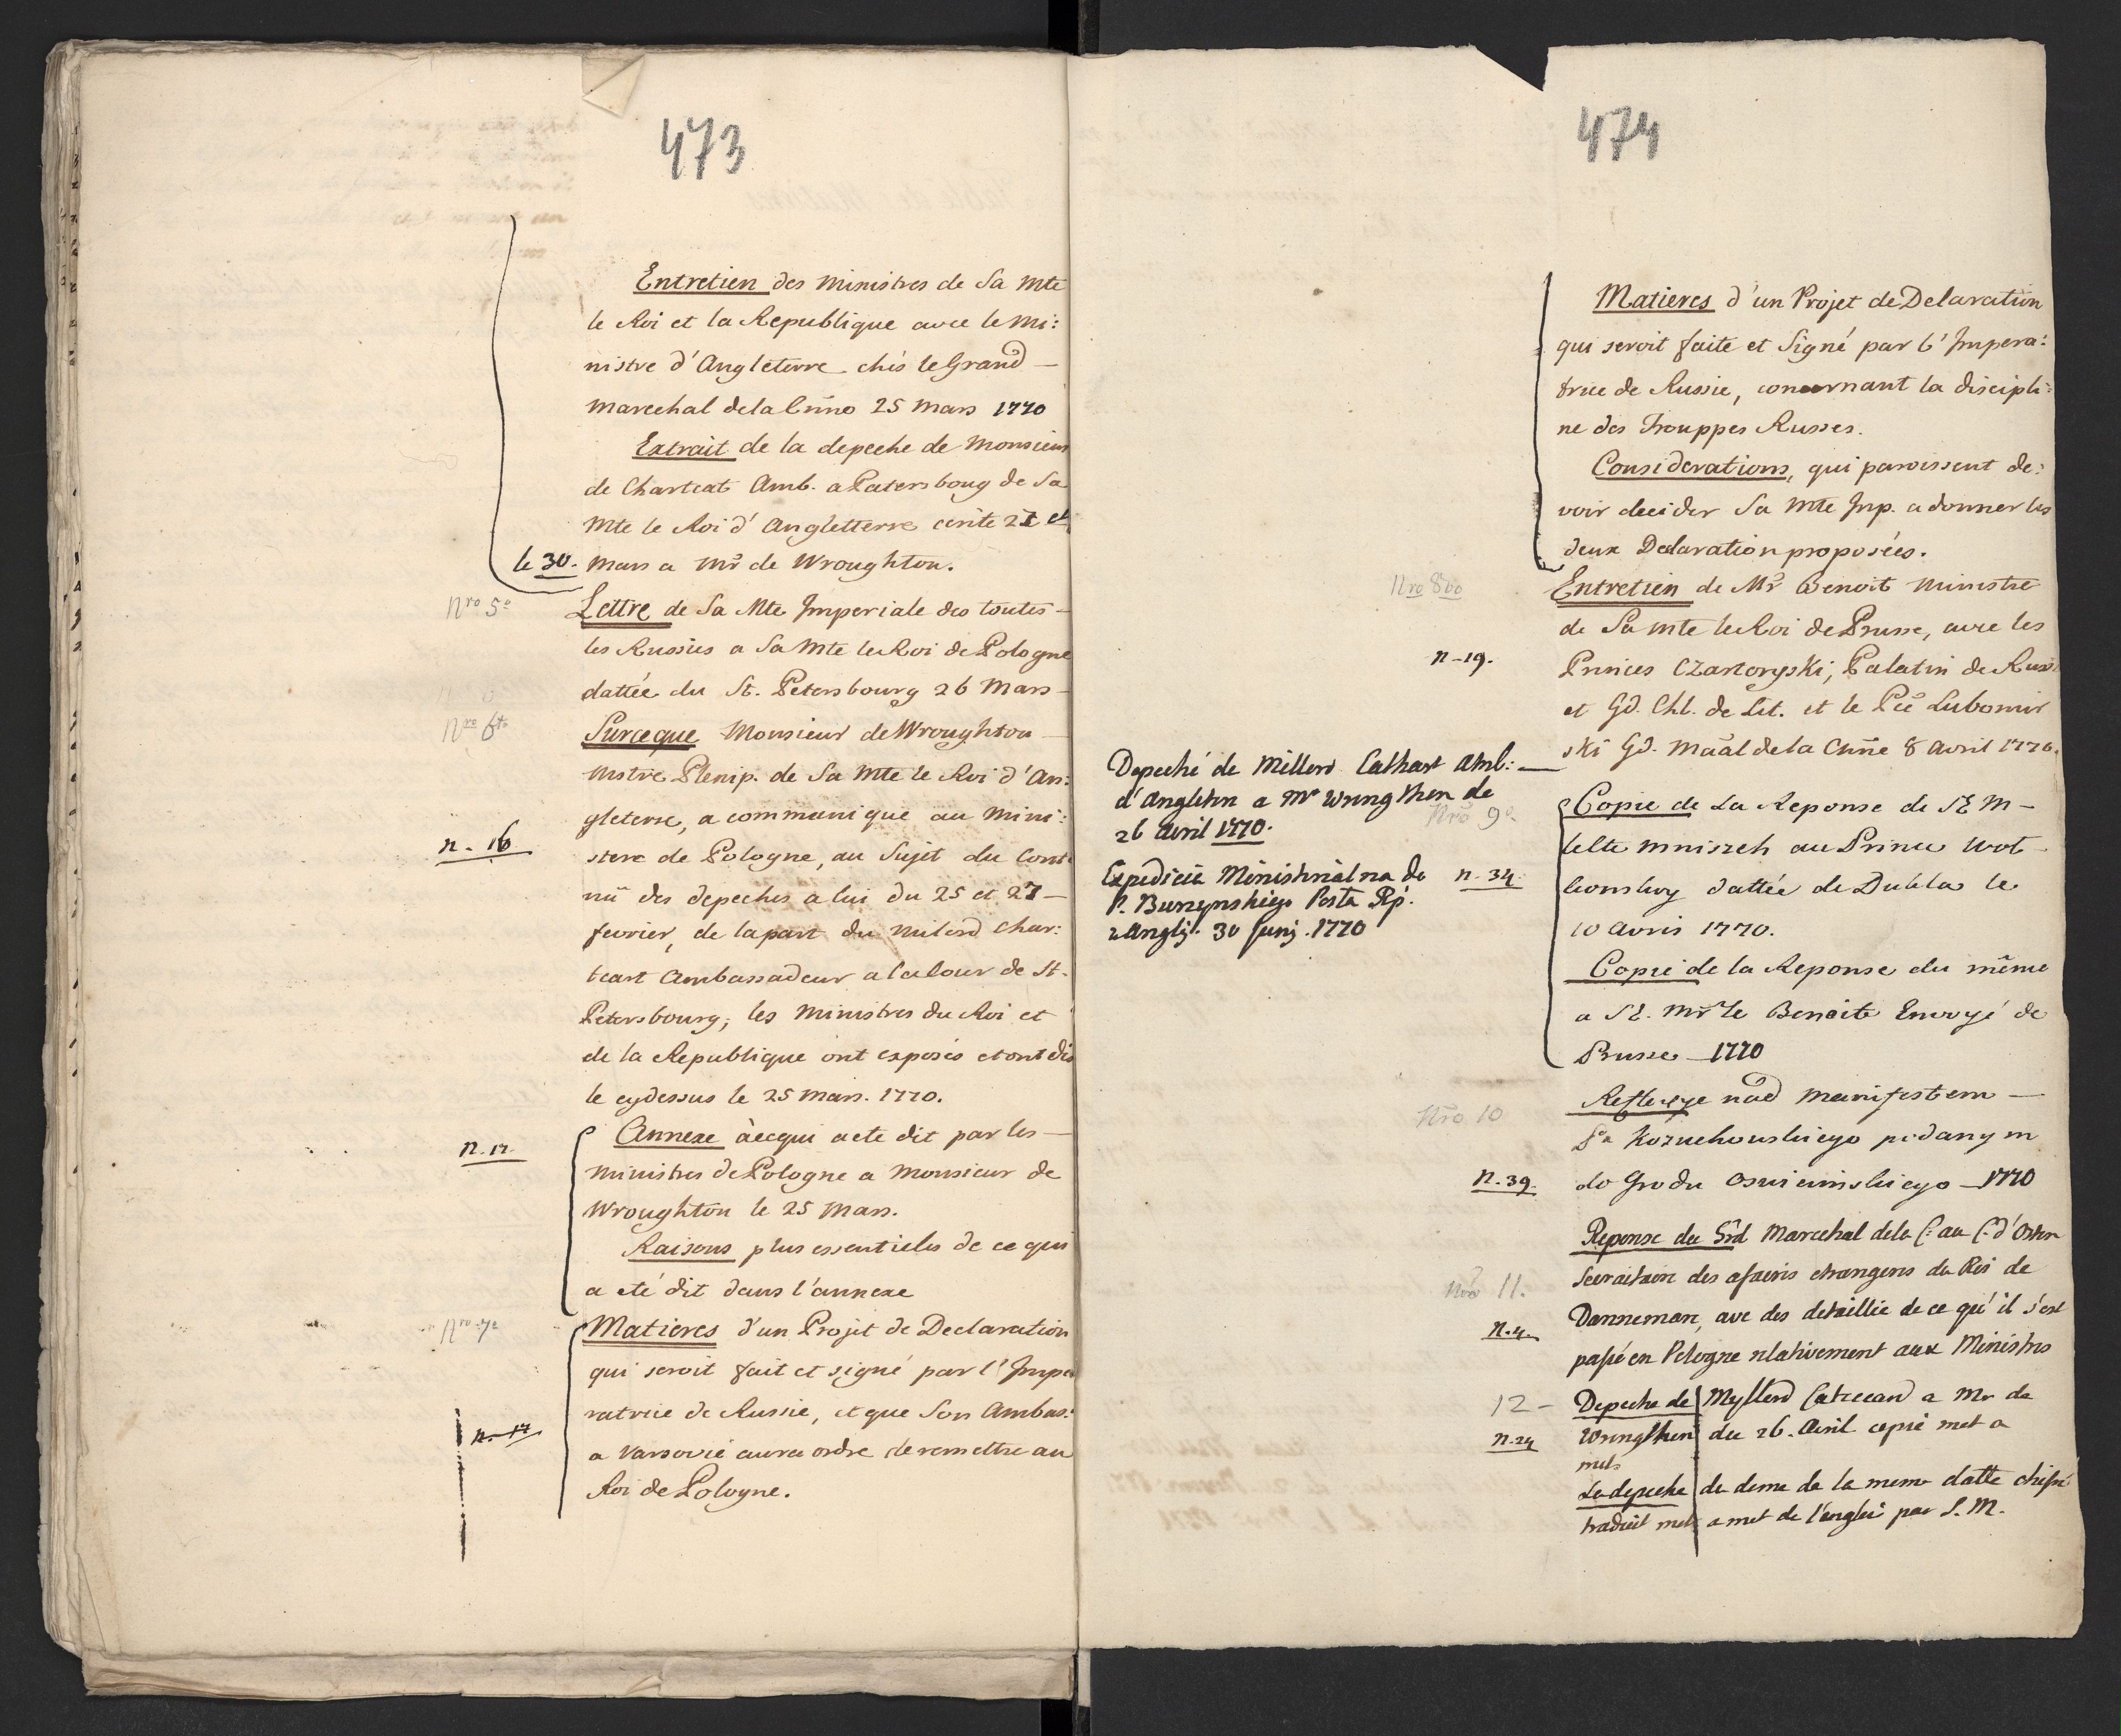 473
Entretien des Ministres de Sa Mte
le Roi et la Republique avec le Mi:
nistre d'Angleterre chés le Grand —
Marechal dela 25 Mars 1770
Extrait de la depeche de Monsieur
de Chartcat Amb. a Patersboug de Sa
Mte le Roi d'Angletterre ecrite 27 et
le 30. Mars a Mr de Wroughton.
Nro 5o Lettre de Sa Mte Imperiale des toutes —
les Russies a Sa Mte le Roi de Pologne
dattée du St. Petersbourg 26 Mars —
Nro 6to Surceque Monsieur de Wroughton —
Mstre Plenip. de Sa Mte le Roi d'An:
gleterre, a communiqué au Mini:
n. 16 stere de Pologne, au Sujet du Conte
nû des depeches a lui du 25 et 27 —
fevrier, de lapart du Milord Char:
tcart Ambassadeur a la Cour de St.
Petersbourg; les Ministres du Roi et
de la Republique ont exposés et ont dis
le cydessus le 25 Mars. 1770.
n. 17. Annexe àcequi a ete dit par les —
Ministres de Pologne a Monsieur de
Wroughton le 25 Mars.
Raisons plus essentieles de ce qui
a eté dit dans l'annexe
Nro 7o Matieres d'un Projet de Declaration
qui seroit fait et signé par l'Impe
ratrice de Russie, et que Son Ambas:
n. 17 a Varsovie aura ordre de remettre au
Roi de Pologne.
474
Matieres d'un Projet de Delaration
qui seroit faite et Signé par l'Impera:
trice de Russie, concernant la discipli:
ne des Trouppes Russes.
Considerations, qui paroissent de:
voir decider Sa Mte Imp. a donner les
deux Declaration proposées.
Nro 8vo Entretien de Mr Benoit Ministre
de Sa Mte le Roi de Prusse, avec les
n-19. Princes Czartoryski, Palatin de Russ
et Gd. Chl. de Lit. et le Pce Lubomir
ski Gd. Maal de la Cnne 8 Avril 1770.
Depeché de Millord Cathart Amb: —
d'Angletrn a Mr Wrungthon de
26 Avril 1770.
Expedicia Ministerialna do
P. Burzynskiego Posta Rp.
w Anglij. 30 Junj. 1770
Nro 9o Copie de La Reponse de S E M —
Celte Mniszech au Prince Wol
n. 34. konskoy dattée de Dukla le
10 Avris 1770.
Copie de la Reponse du même
a S E. Mr le Benoite Envoyé de
Prusse — 1770
Nro 10 Reflexye nad Manifestem —
Kozuchowskiego podanym
n. 39. do Grodu Oswiecimskiego — 1770
Reponse du Grd Marechal dela C: au C. d'Osten
Nro 11. Secraitaire des afairis etrangeris du Roi de
Dannemarc, avec des detaillie de ce qu'il s'est
n. 4. passé en Pologne relativement aux Ministres
12 — Depeche de Myllord Catccard a Mr de
n. 24 Wrungthon du 26. Avril copié mot a
mot
La depeche du deme de la meme datte chifré
traduit mot a mot de l'anglai par S. M.